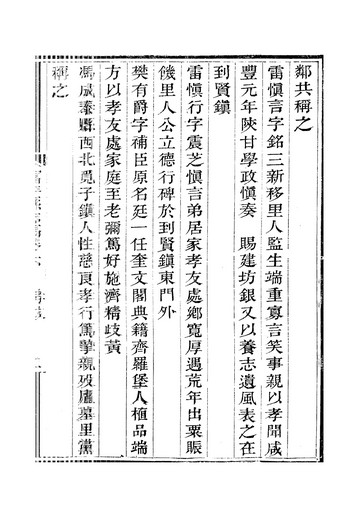 鄰共稱之
雷愼言字銘三新移里人監生端重寡言笑事親以孝聞咸
豐元年陜甘學政愼奏　賜建坊銀又以養志遺風表之在
到賢鎭
雷愼行字震芝愼言弟居家孝友處鄉寬厚遇荒年出粟賑
饑里人公立德行碑於到賢鎭東門外
樊有爵字補臣原名廷一任奎文閣典籍齊羅堡人植品端
方以孝友處家庭至老彌篤好施濟精岐黃
馮成泰縣西北覓子鎭人性慈良孝行篤摯親歿廬墓里黨
稱之